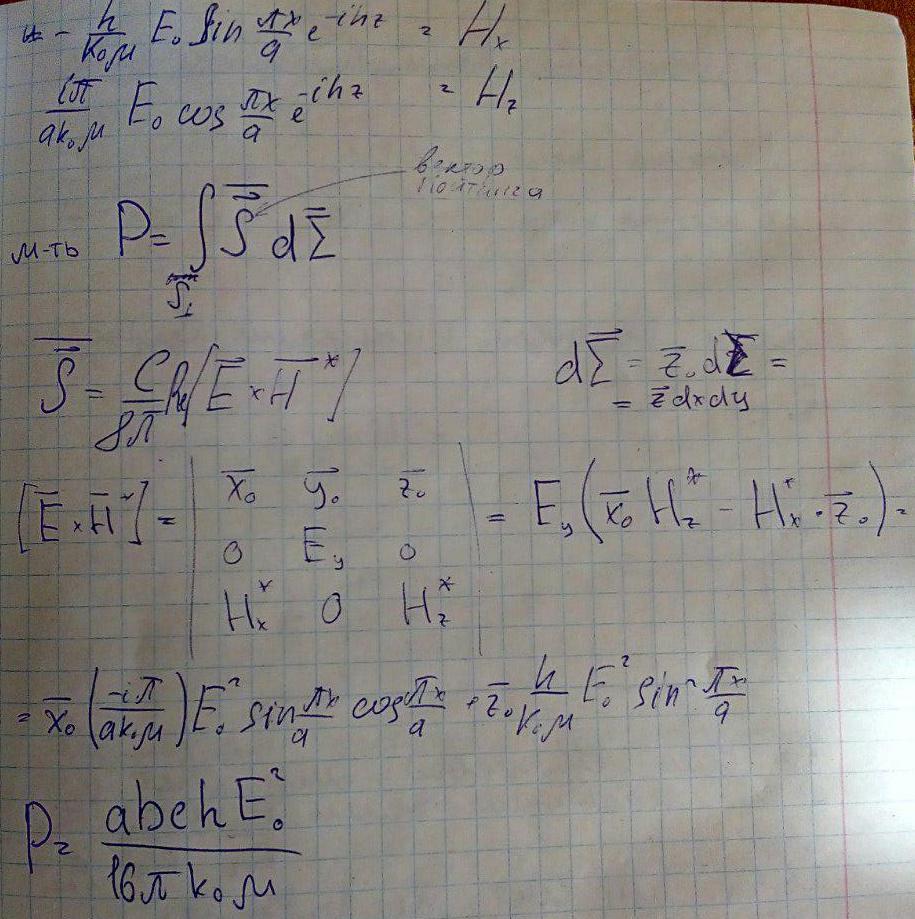 - h/(k₀μ) E₀ sin πx/a e^{-ihz} = Hₓ
iπ/(ak₀μ) E₀ cos πx/a e^{-ihz} = H_z
вектор
Пойтинга
м-ть P = ∫_{S⊥} S̄ dΣ̄
S̄ = c/(8π) Re[Ē × H̄*]
dΣ̄ = z̄₀ dΣ =
= z̄ dx dy
[Ē × H̄*] = | x̄₀ ȳ₀ z̄₀ | = E_y (x̄₀ H_z* - Hₓ* · z̄₀) =
0 E_y 0
Hₓ* 0 H_z*
= x̄₀ (-iπ/(ak₀μ)) E₀² sin πx/a cos πx/a + z̄₀ h/(k₀μ) E₀² sin² πx/a
P = abchE₀²/(16πk₀μ)